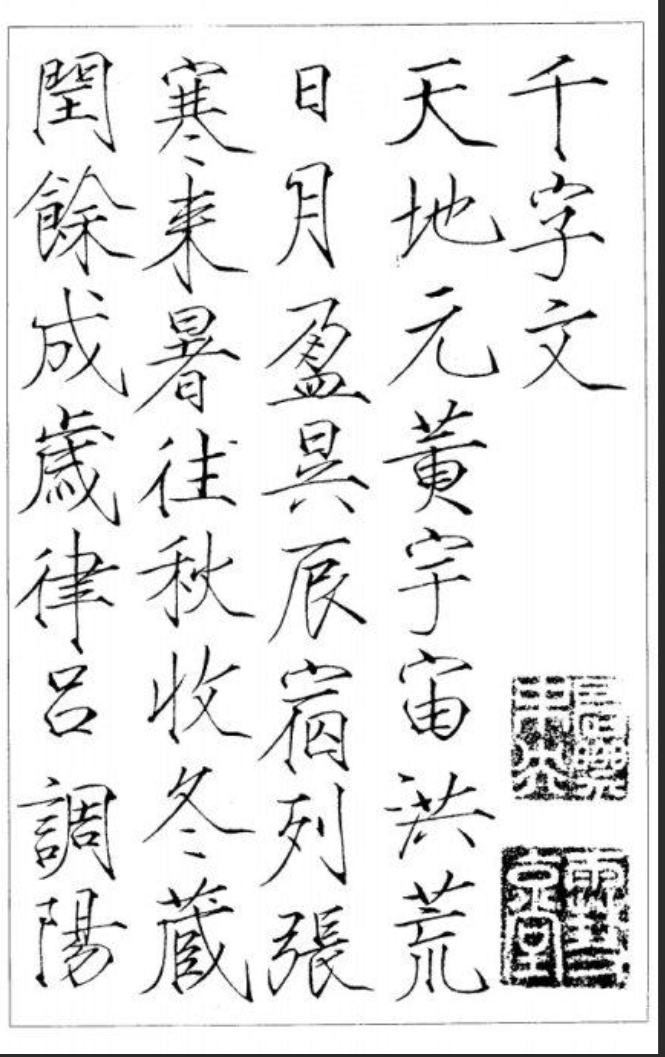 千字文
天地元黄宇宙洪荒
日月盈昃辰宿列張
寒来暑徃秋收冬蔵
閏餘成歳律呂調陽